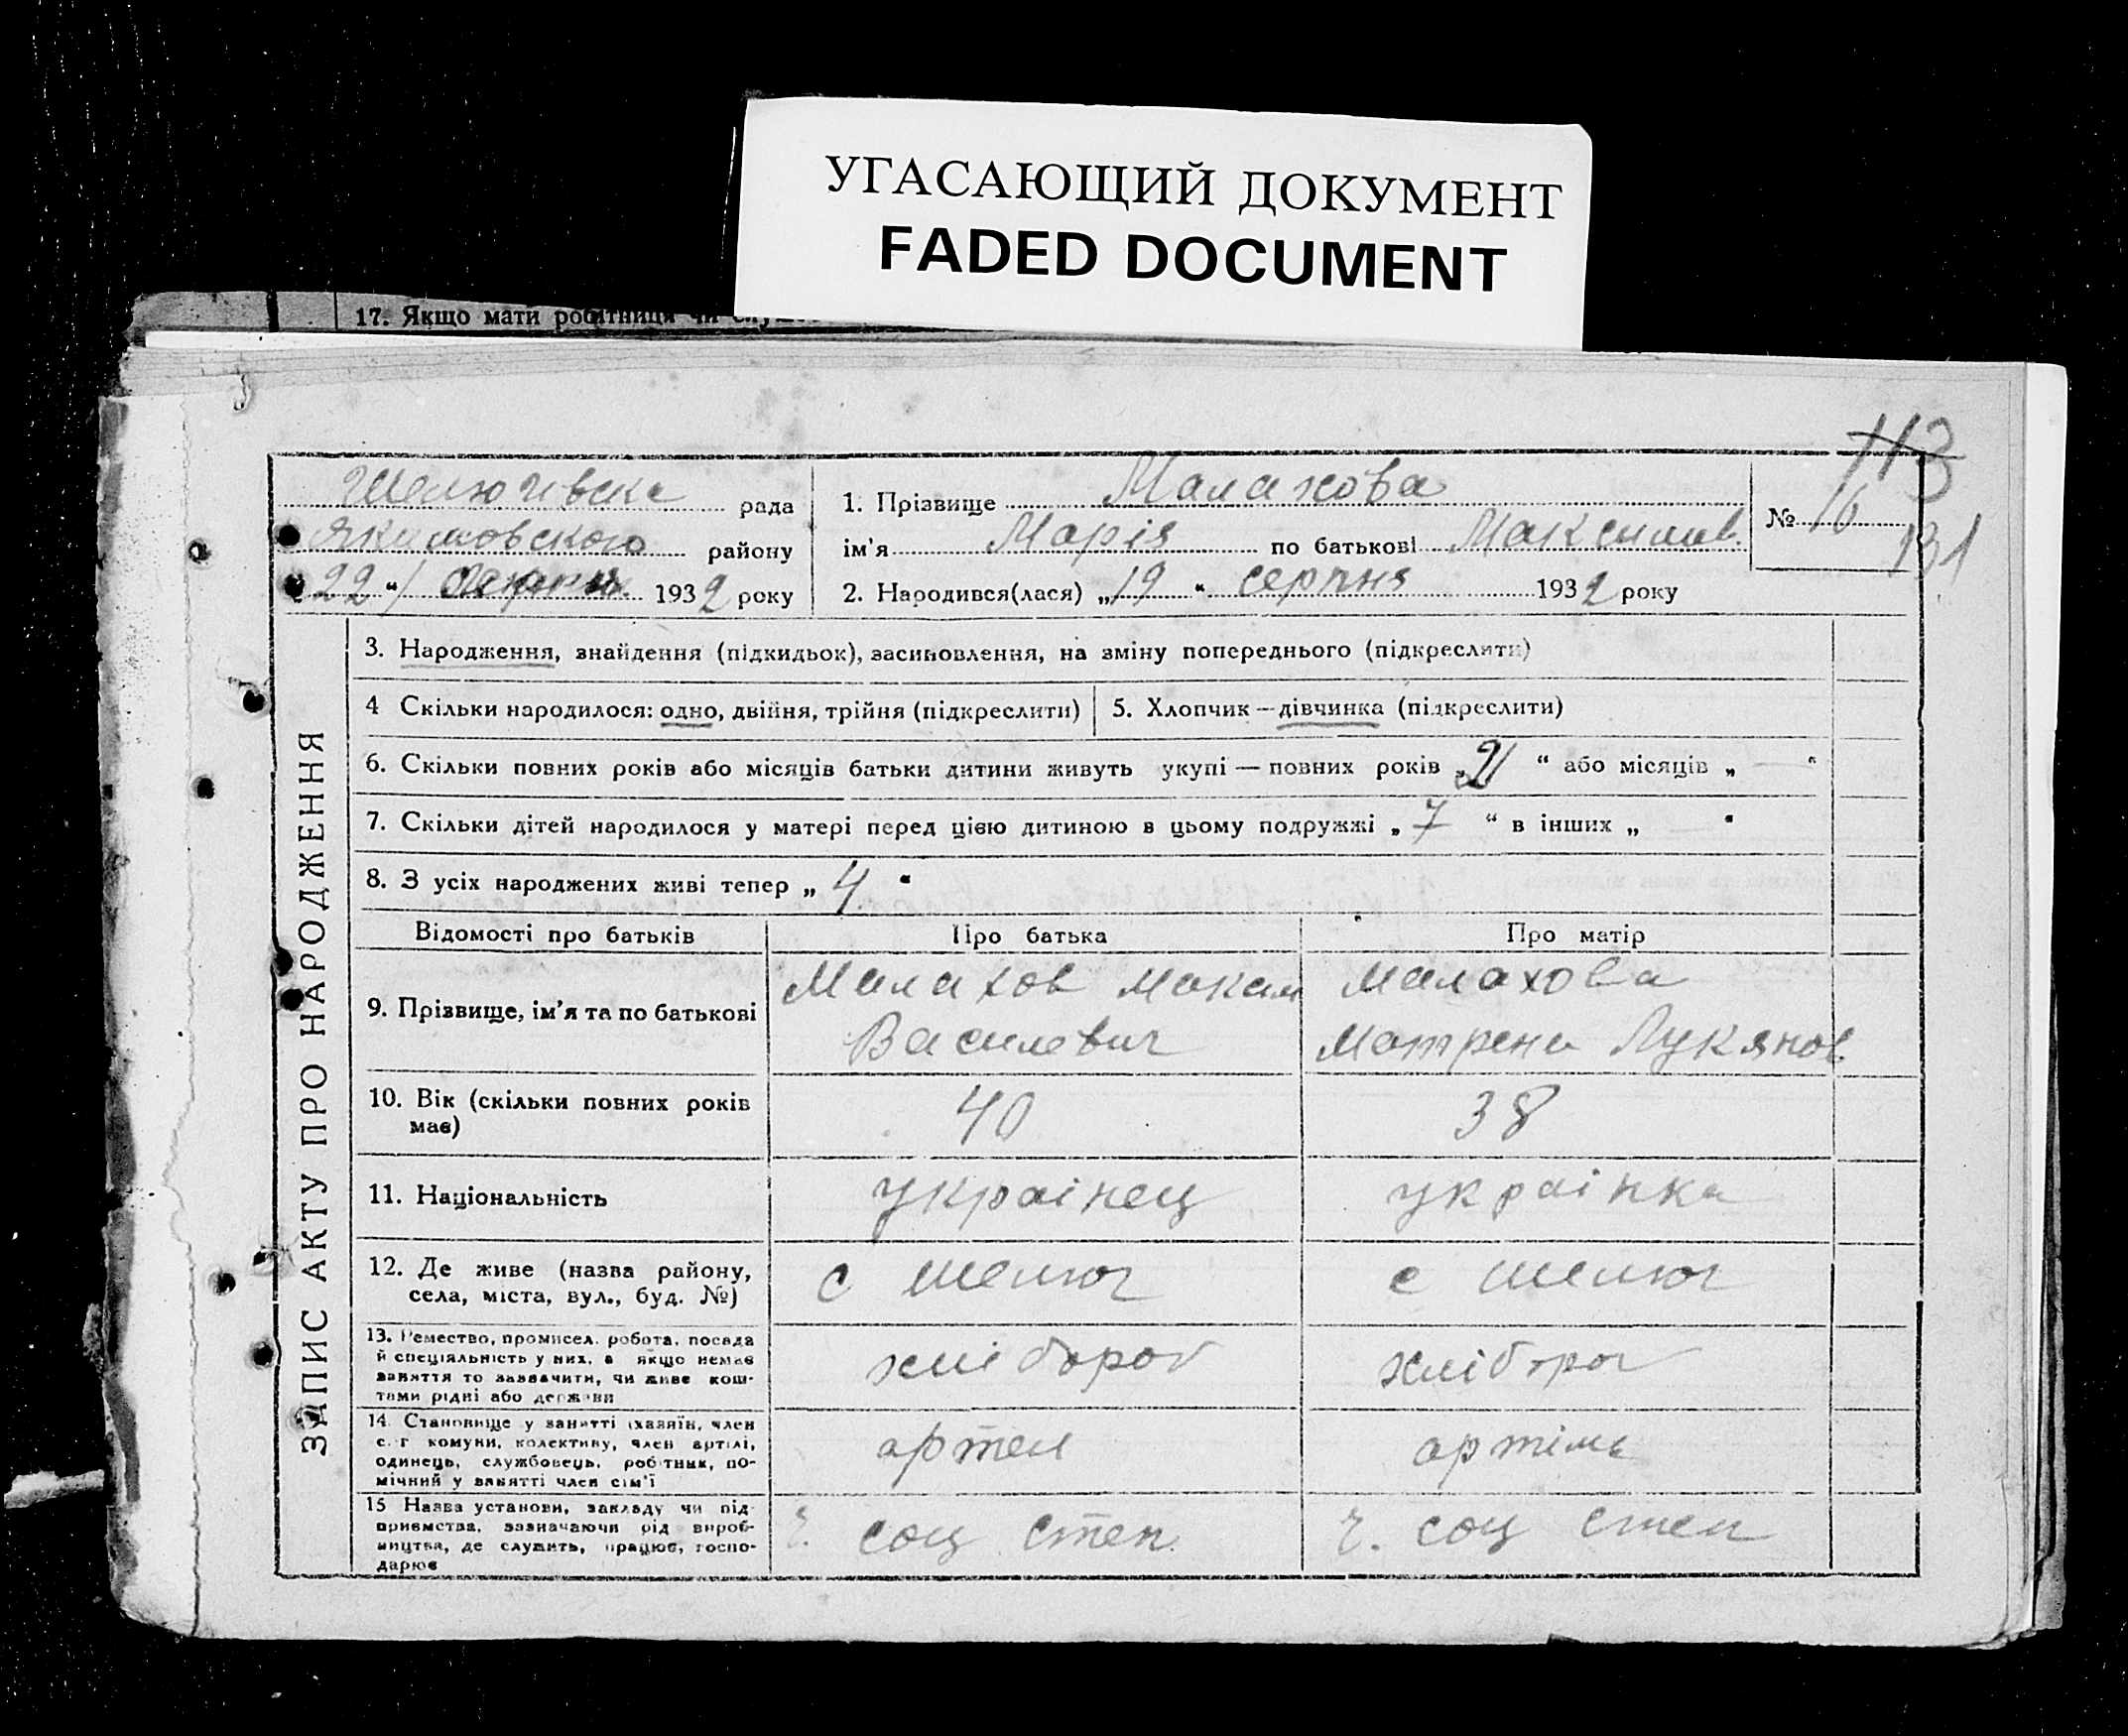 УГАСАЮЩИЙ ДОКУМЕНТ
FADED DOCUMENT
17. Якщо мати робітниця чи
113
131
Шелюгівська рада
Якимовского району
22 " 1932 року
1. Прізвище Малахова
ім'я Марія по батькові Максимів.
№ 16
2. Народився(лася) „19 “ серпня 1932 року
ЗАПИС АКТУ ПРО НАРОДЖЕННЯ
3. Народження, знайдення (підкидьок), засиновлення, на зміну попереднього (підкреслити)
4 Скільки народилося: одно, двійня, трійня (підкреслити)
5. Хлопчик — дівчинка (підкреслити)
6. Скільки повних років або місяців батьки дитини живуть укупі — повних років „21 “ або місяців „ — “
7. Скільки дітей народилося у матері перед цією дитиною в цьому подружжі „ 7 “ в інших „ — “
8. З усіх народжених живі тепер „ 4 “
Відомості про батьків Про батька Про матір
9. Прізвище, ім'я та по батькові
Малахов Максим
Василевич
Малахова
Матрена Лукянов.
10. Вік (скільки повних років має)
40
38
11. Національність
українец
українка
12. Де живе (назва району,
села, міста, вул., буд. №)
с Шелюг
с Шелюг
13. Ремество, промисел, робота, посада
й спеціяльність у них, а якщо немає
заняття то зазначити, чи живе кош-
тами рідні або держави
хлібороб
хлібороб
14. Становище у занятті (хазяїн, член
с.-г комуни, колективу, член артілі,
одинець, службовець, робітник, по-
мічний у занятті член сім'ї
артел
артіль
15 Назва установи, закладу чи під-
приємства, зазначаючи рід вироб-
ництва, де служить, працює, госпо-
дарює
Ч. соц степ.
Ч. соц степ